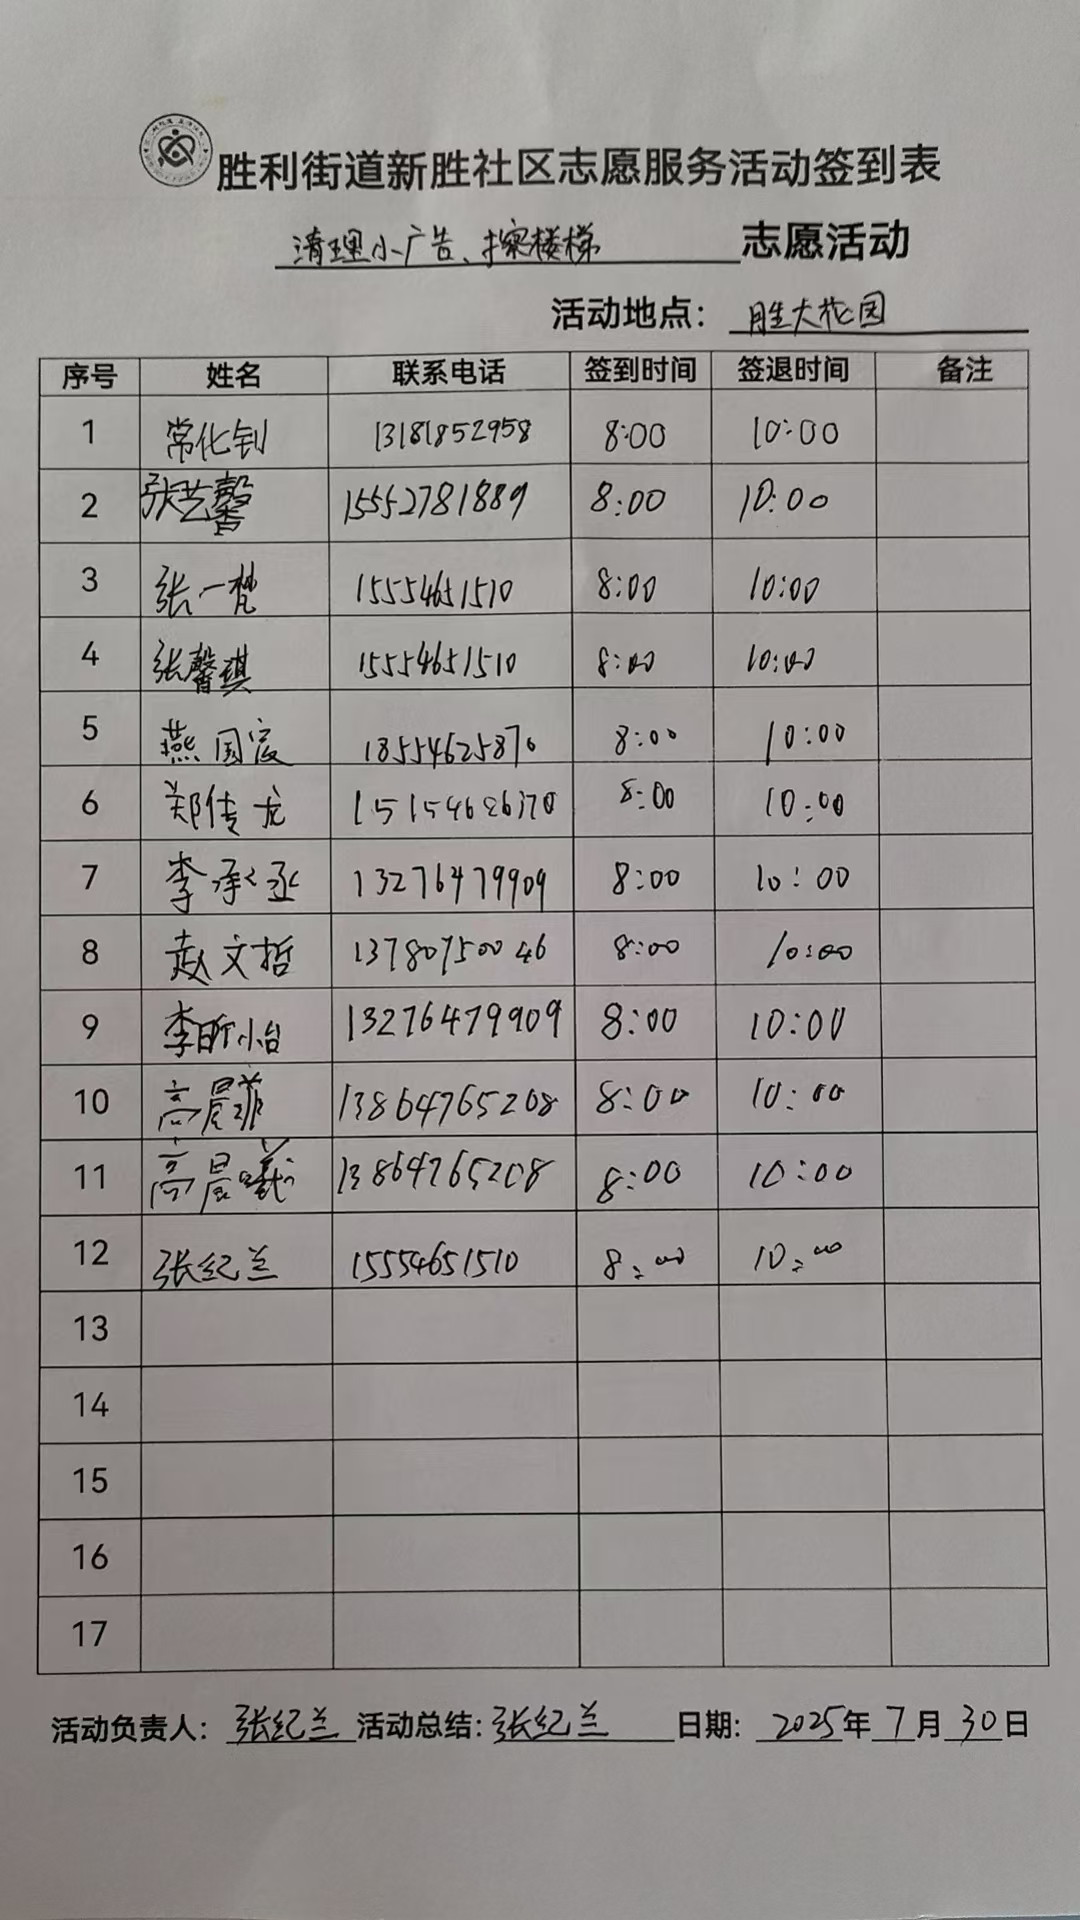 胜利街道新胜社区志愿服务活动签到表
清理小广告、擦楼梯 志愿活动
活动地点：胜大花园
序号 姓名 联系电话 签到时间 签退时间 备注
1 常化钊 13181852958 8:00 10:00
2 张艺馨 15552781889 8:00 10:00
3 张一梵 15554651510 8:00 10:00
4 张馨琪 15554651510 8:00 10:00
5 燕国 18554625870 8:00 10:00
6 郑传龙 8:00 10:00
7 李承丞 13276479909 8:00 10:00
8 赵文哲 13780750046 8:00 10:00
9 李昕怡 13276479909 8:00 10:00
10 高晨菲 13864765208 8:00 10:00
11 高晨曦 13864765208 8:00 10:00
12 张纪兰 15554651510 8:00 10:00
13
14
15
16
17
活动负责人：张纪兰 活动总结：张纪兰 日期：2025年7月30日